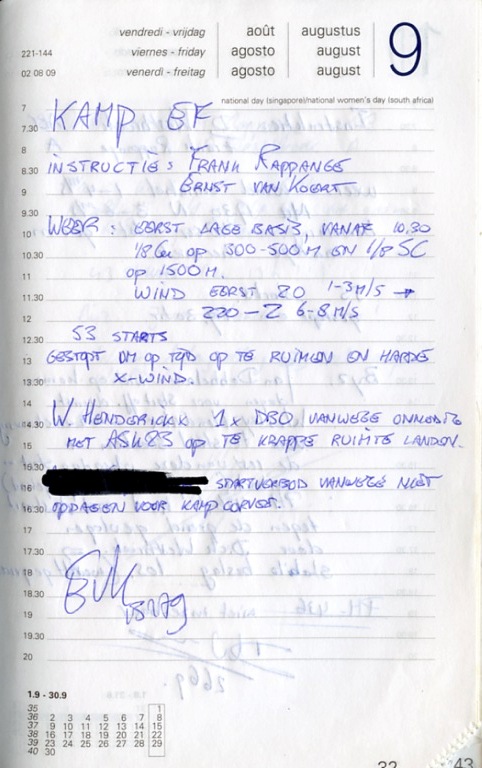 vendredi - vrijdag août augustus
221-144 viernes - friday agosto august 9
02 08 09 venerdì - freitag agosto august
national day (singapore)/national women's day (south africa)
7
KAMP EF
7.30
8
8.30 INSTRUCTIE: FRANK RAPPANGE
9 ERNST VAN KOERT
9.30
10 WEER: EERST LAGE BASIS, VANAF 10.30
10.30 1/8 Cu OP 300-500 M EN 1/8 SC
11 OP 1500 M.
11.30 WIND EERST ZO 1-3 M/S →
12 220 - Z 6-8 M/S
12.30 53 STARTS
13 GESTOPT OM OP TIJD OP TE RUIMEN EN HARDE
13.30 X-WIND.
14
14.30 W. HENDERICKX 1x DBO VANWEGE ONNODIG
15 MET ASK23 OP TE KRAPPE RUIMTE LANDEN.
15.30
16 STARTVERBOD VANWEGE NIET
16.30 OPDAGEN VOOR KAMPCORVEE!
17
17.30
18 EvK
18.30
19
19.30
20
1.9 - 30.9
35 1
36 2 3 4 5 6 7 8
37 9 10 11 12 13 14 15
38 16 17 18 19 20 21 22
39 23 24 25 26 27 28 29
40 30
32 43